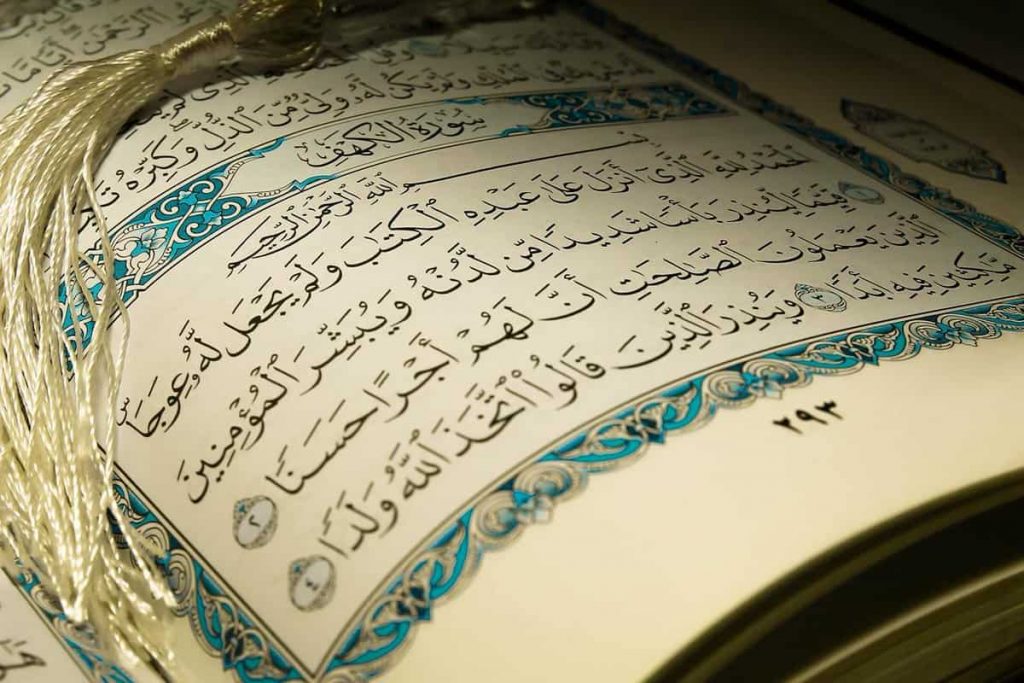 ٱلرَّحْمَٰنَ أَيًّا مَّا
ٱلَّذِى لَمْ
وَلَمْ يَكُن لَّهُۥ وَلِىٌّ مِّنَ ٱلذُّلِّ وَكَبِّرْهُ
سُورَةُ الكَهْفِ
بِسْمِ ٱللَّهِ ٱلرَّحْمَٰنِ ٱلرَّحِيمِ
ٱلْحَمْدُ لِلَّهِ ٱلَّذِىٓ أَنزَلَ عَلَىٰ عَبْدِهِ ٱلْكِتَٰبَ وَلَمْ يَجْعَل لَّهُۥ عِوَجَاۜ
١ قَيِّمًا لِّيُنذِرَ بَأْسًا شَدِيدًا مِّن لَّدُنْهُ وَيُبَشِّرَ ٱلْمُؤْمِنِينَ
ٱلَّذِينَ يَعْمَلُونَ ٱلصَّٰلِحَٰتِ أَنَّ لَهُمْ أَجْرًا حَسَنًا ٢
مَّٰكِثِينَ فِيهِ أَبَدًا ٣ وَيُنذِرَ ٱلَّذِينَ قَالُوا۟ ٱتَّخَذَ ٱللَّهُ وَلَدًا ٤
٢٩٣